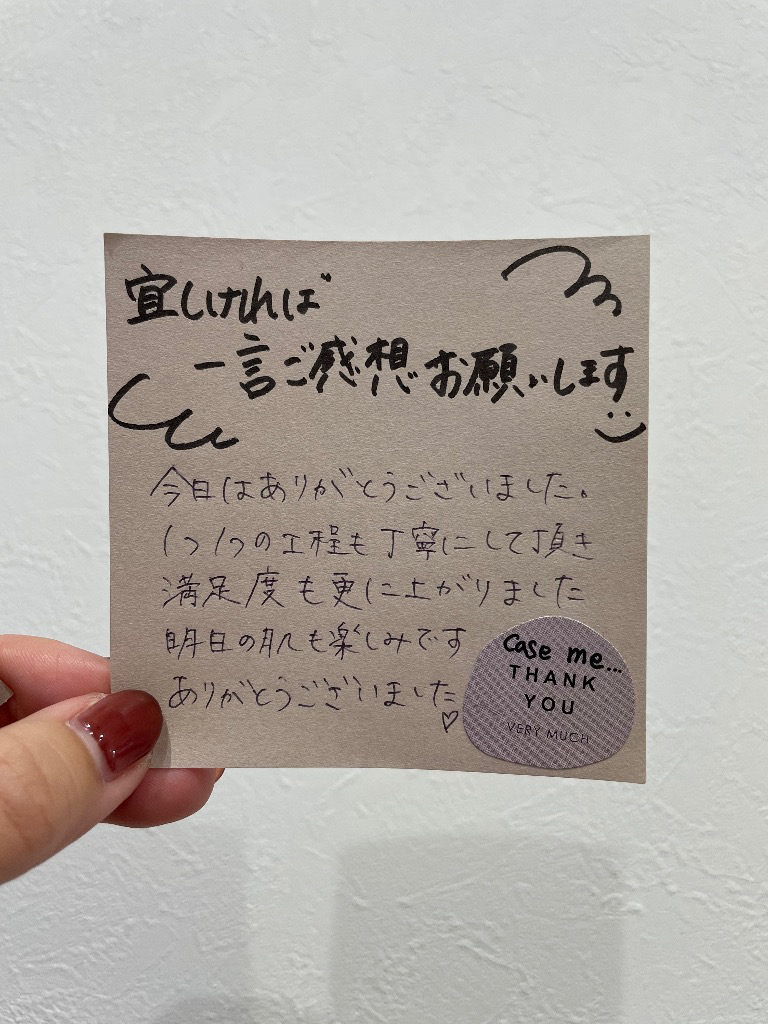 宜しければ
一言ご感想お願いします
今日はありがとうございました。
1つ1つの工程も丁寧にして頂き
満足度も更に上がりました
明日の肌も楽しみです
ありがとうございました♡
Case me...
THANK
YOU
VERY MUCH